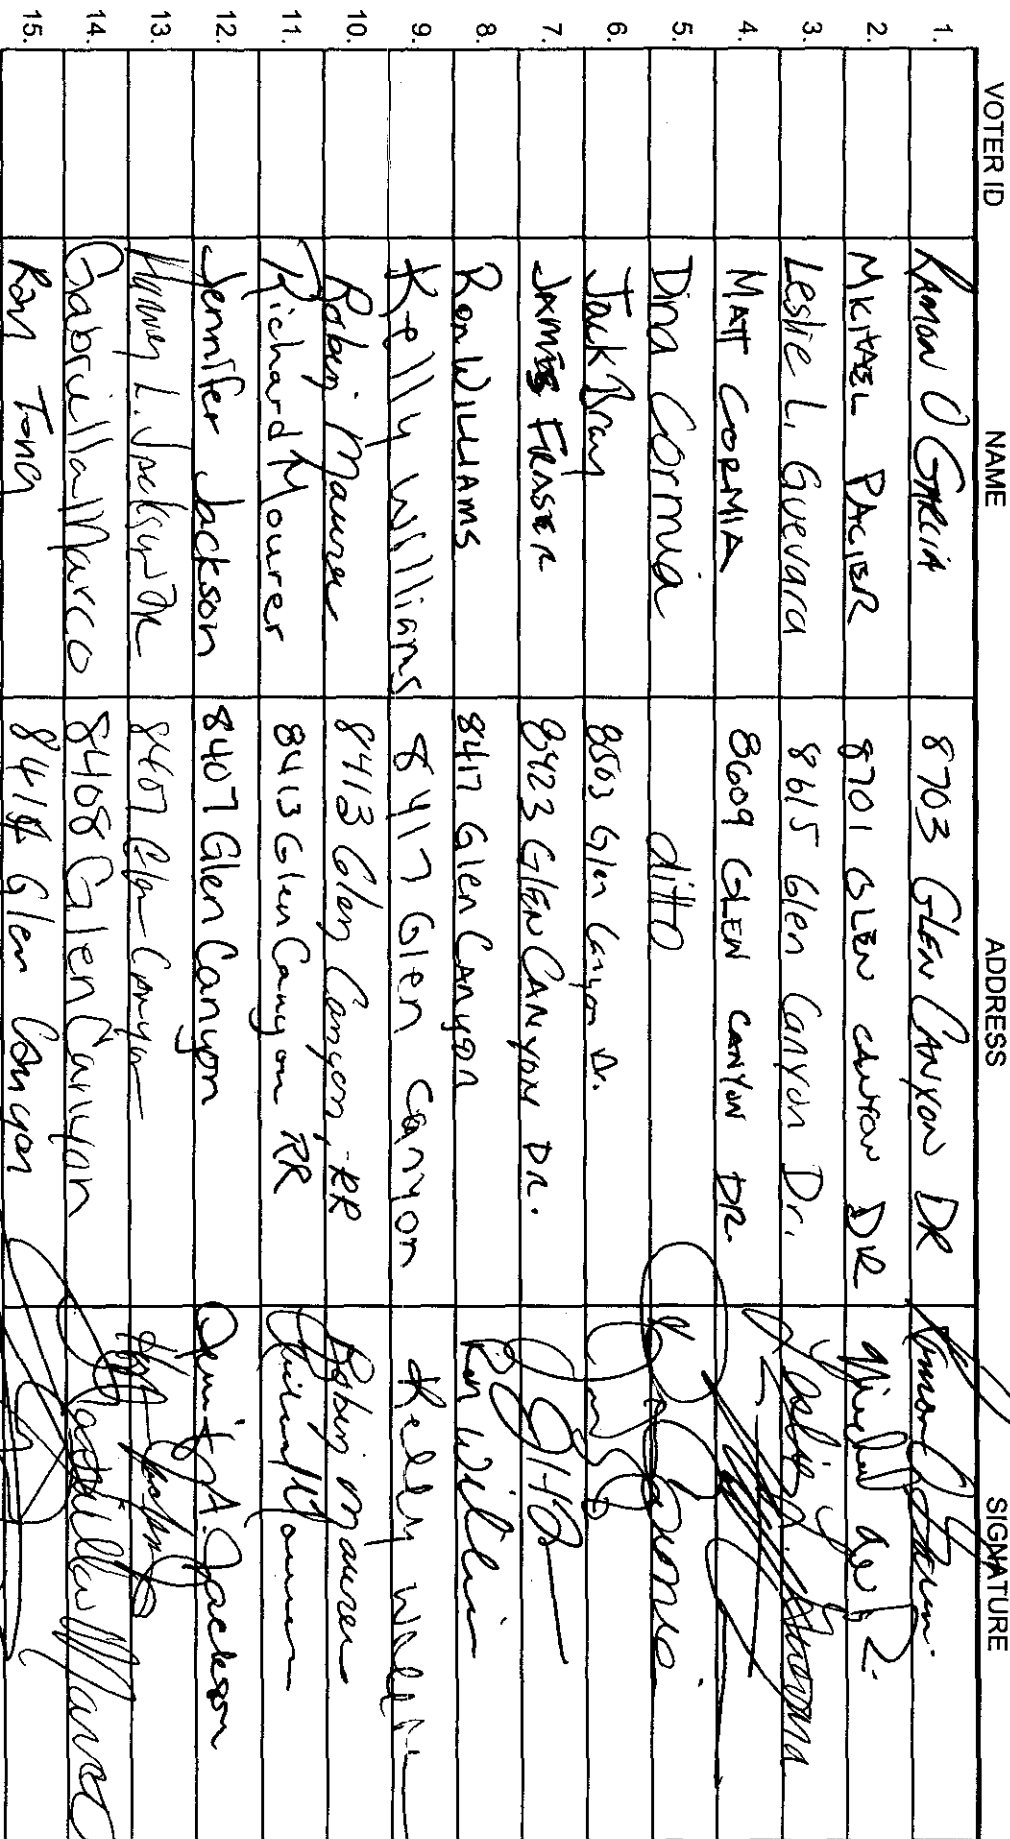 VOTER ID NAME ADDRESS SIGNATURE
1. Ramon O Garcia 8703 Glen Canyon DR
2. MKITAEL PACIER 8701 GLEN CANYON DR
3. Leslie L. Guevara 8615 Glen Canyon Dr.
4. MATT CORMIA 8609 GLEN CANYON DR.
5. Dina Cormia ditto
6. Jack Bray 8503 Glen Canyon Dr.
7. JAMES FRASER 8423 GLEN CANYON DR.
8. Ron WILLIAMS 8417 Glen Canyon Ron Williams
9. Kelly Williams 8417 Glen Canyon Kelly Williams
10. Robin Maurer 8413 Glen Canyon, RR Robin Maurer
11. Richard Mourer 8413 Glen Canyon RR
12. Jennifer Jackson 8407 Glen Canyon Jennifer A. Jackson
13. L. Jackson Jr 8407 Glen Canyon
14. Gabriella Marco 8408 Glen Canyon Gabriella Marco
15. Tong Glen Canyon